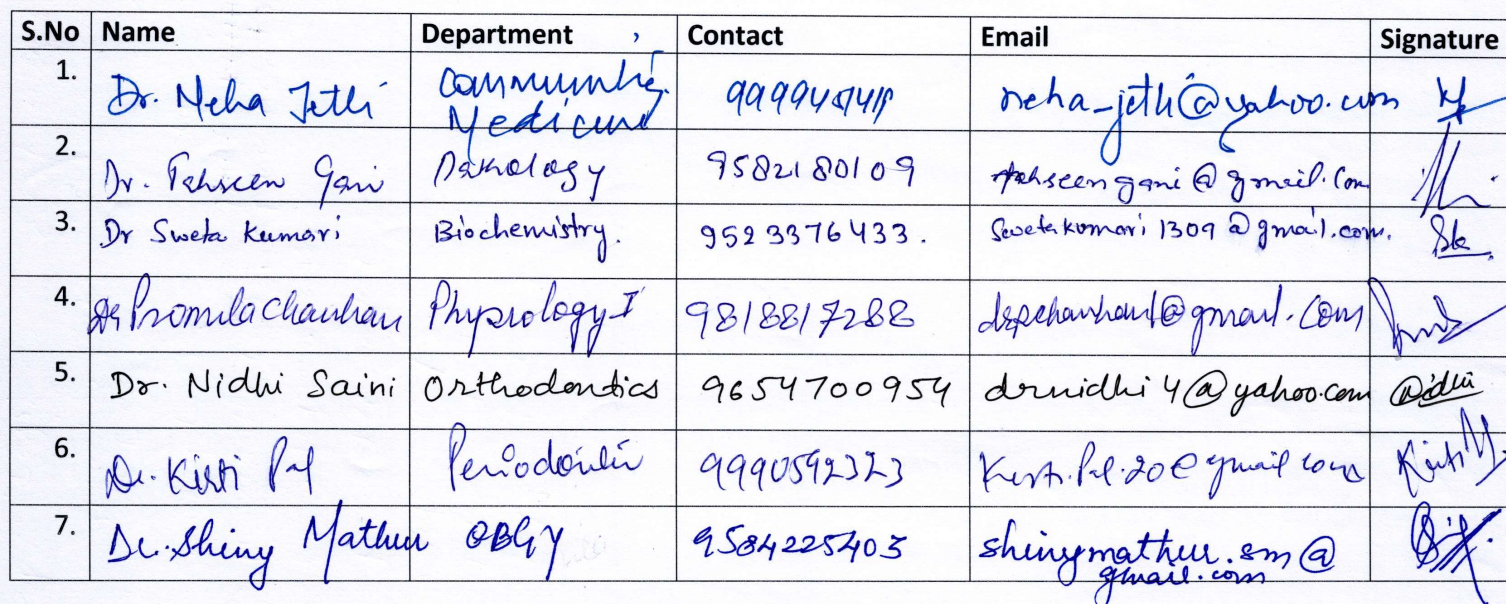 S.No Name Department Contact Email Signature
1. Dr. Neha Jethi Community Medicine neha_jethi@yahoo.com
2. Dr. Tehseen Gani Pathology 9582180109 tehseengani@gmail.com
3. Dr Sweta Kumari Biochemistry. 9523376433. Swetakumari1309@gmail.com. Sk
4. Dr Promila Chauhan Physiology I 9818817288 drpchauhan1@gmail.com
5. Dr. Nidhi Saini Orthodontics 9654700954 drnidhi4@yahoo.com Nidhi
6. Dr. Kirti Pal 9990592323 Kirti.Pal.20@gmail.com Kirti
7. Dr. Shiny Mathur OBGY 9584225403 shinymathur.sm@
gmail.com